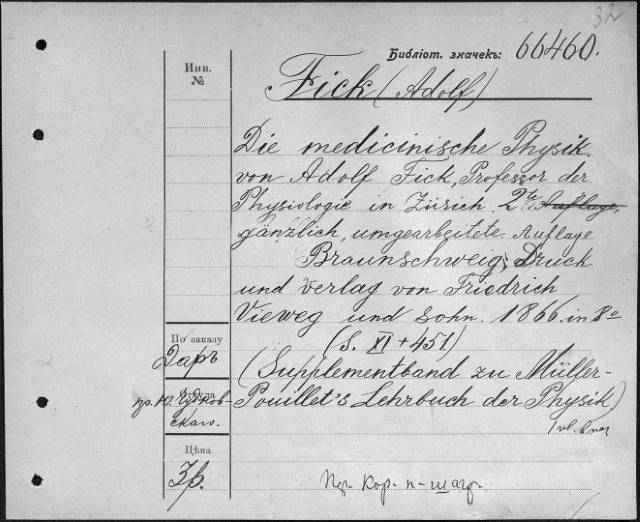 32
Библіот. значекъ: 66460.
Инв.
№
Fick (Adolf)
Die medicinische Physik
von Adolf Fick, Professor der
Physiologie in Zürich. 2te Auflage,
gänzlich umgearbeitete Auflage
Braunschweig, Druck
und verlag von Friedrich
Vieweg und sohn. 1866. in 8o
(S. XI + 451)
По заказу
Даръ
(Supplementband zu Müller-
Откуда
Pouillet's Lehrbuch der Physik)
скаго.
1 vl.
Цѣна
3р.